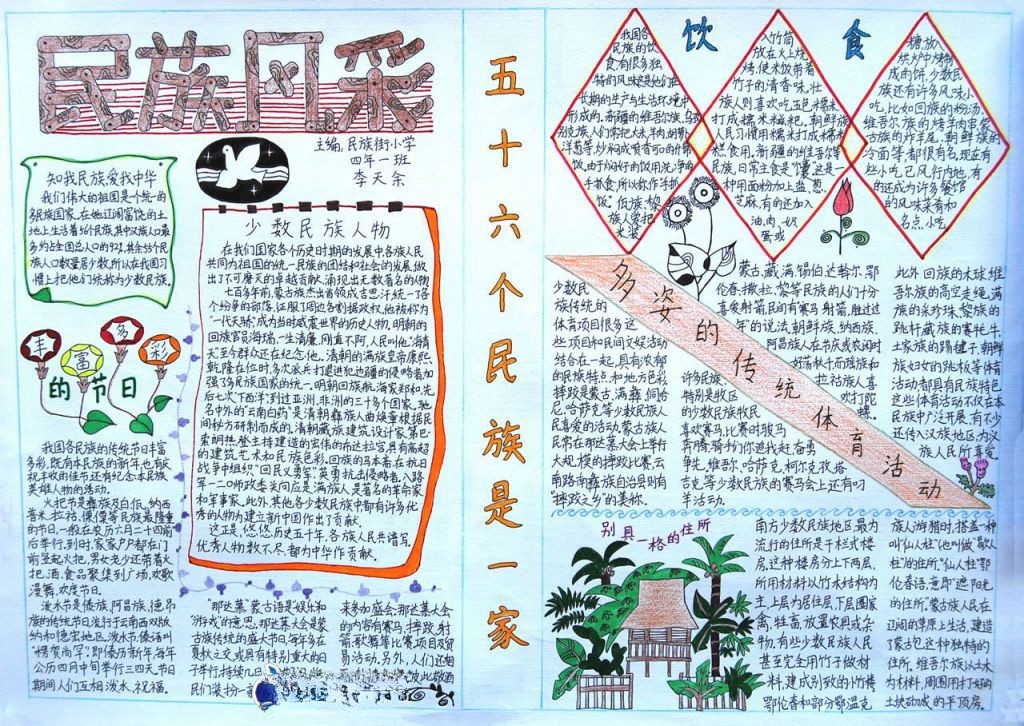 民族风彩
主编:民族街小学
四年一班
李天余
知我民族,爱我中华
我们伟大的祖国是个统一的
多民族国家,在她辽阔富饶的土
地上生活着56个民族,其中汉族人口最
多约占全国总人口的92%,其余55个民
族人口数量居少数,所以在我国习
惯上把他们统称为少数民族。
少数民族人物
在我们国家各个历史时期的发展中各族人民
共同为祖国的统一,民族的团结和社会的发展,做
出了不可磨灭的卓越贡献,涌现出无数著名的人物。
七百多年前,蒙古族杰出首领成吉思汗统一了各
个纷争的部落,征服了周边各割据政权,他被称为
“一代天骄”成为当时威震世界的历史人物,明朝的
回族官员海瑞,一生清廉,刚直不阿,人民叫他“海青
天”至今群众还在纪念他。清朝的满族皇帝康熙
乾隆在位时,多次派兵打退进犯边疆的侵略者加
强了多民族国家的统一。明朝回族航海家郑和先
后七次“下西洋”到过亚洲、非洲的三十多个国家。驰
名中外的“云南白药”是清朝彝族人曲焕章根据民
间秘方研制而成的,清朝藏族建筑设计家第巴·
索朗热登主持建造的宏伟的布达拉宫,具有高超
的建筑艺术和民族色彩。回族的马本斋,在抗日
战争中组织“回民义勇军”英勇抗击侵略者,八路
军一二0师政委关向应是满族人是著名的革命家
和军事家。此外,其他各少数民族中都有许多优
秀的人物为建立新中国作出了贡献。
这正是,悠悠历史五千年,各族人民共谱写,
优秀人物数不尽,都为中华作贡献。
丰富多彩
的节日
我国各民族的传统节日丰富
多彩,既有本民族的新年,也有欢
祝丰收的佳节还有纪念本民族
英雄人物的活动。
火把节是彝族及白族、纳西
普米、拉祜、傈僳等民族最隆重
的节日,一般在农历六月二十四前
后举行,到时,家家户户都在门
前竖起火把,男女老少还带着火
把、酒、食品聚集到广场,欢歌
漫舞、欢度节日。
泼水节是傣族、阿昌族、德昂
族的传统节日,流行于云南西双版
纳和德宏地区,泼水节,傣语叫
“楞贺尚罕”,即傣历新年,每年
公历四月中旬举行三四天,节日
期间人们互相泼水、祝福。
“那达慕”蒙古语是“娱乐和
“游戏”的意思,那达慕大会是蒙
古族传统的盛大节日,每年多在
夏秋之交,或具有特别重大的日
子举行,持续几日
民们装扮一新
来参加盛会,那达慕大会
的内容有赛马、摔跤、射
箭、歌舞等比赛项目及贸
易活动,另外,人们还相
五十六个民族是一家
饮食
我国各
民族的饮
食有很多独
特的风味这是他们在
长期的生产与生活环境中
形成的,新疆的维吾尔族、乌孜
别克族人们常把大米、羊肉、胡萝卜
洋葱等,炒焖成喷香可口的什锦
饭,由于焖好的饭用洗净的
手抓食,所以称作手抓
饭。佤族、黎
族人爱把
米装
入竹筒
放在火上烧
烤,使米饭带着
竹子的清香味。壮
族人则喜欢吃五色糯米
打成糯米糍粑。朝鲜族
人民习惯用糯米打成糯米
糕食用。新疆的维吾尔等
民族,日常主食是“馕”这是一
种用面粉加上盐、葱、
芝麻,有的还加入
油、肉、奶
蛋或
糖,放入
烘炉中烤制
成的饼,少数民
族还有许多风味小
吃,比如回族的粉汤,
维吾尔族的烤羊肉串,蒙
古族的炸羊尾,朝鲜族的
冷面等,都很有名,现在有
些小吃,已风行内地,有
的还成为许多餐馆
的风味菜肴和
名点小吃
多姿的传统体育活动
少数民
族传统的
体育项目很多,这
些项目和民间文娱活动
结合在一起,具有浓郁
的民族特色,和地方色彩
摔跤是蒙古、满、彝、侗、哈
尼、哈萨克等少数民族人
民喜爱的活动,蒙古族人
民常在那达慕大会上举行
大规模的摔跤比赛,云
南路南彝族自治县则有
“摔跤之乡”的美称。
许多民族,
特别是牧区
的少数民族牧民
喜欢赛马,比赛时骏马
奔腾,骑手们你追我赶,奋勇
争先,维吾尔、哈萨克、柯尔克孜、塔
吉克等少数民族的赛马会上还有叼
羊活动。
蒙古、藏、满、锡伯、达斡尔、鄂
伦春、撒拉、黎等民族的人们十分
喜爱射箭,民间有“赛马射箭,胜过过
年”的说法,朝鲜族、纳西族、
阿昌族人在节庆或农闲时
好荡秋千,而瑶族和
拉祜族人喜
欢打陀
螺。
此外,回族的木球、维
吾尔族的高空走绳,满
族的采珍珠,黎族的
跳杆,藏族的赛牦牛,
土家族的踢毽子,朝鲜
族妇女的跳板等体育
活动都具有民族特色
这些体育活动不仅在本
民族中广泛开展,有不少
还传入汉族地区,为汉
族人民所喜爱。
别具一格的住所
南方少数民族地区最为
流行的住所是干栏式楼
房,这种楼房分上下两层,
所用材料以竹木结构为
主,上层为居住层,下层圈家
禽、牲畜,放置农具或杂
物,有些少数民族人民
甚至完全用竹子做材
料,建成别致的小竹楼
鄂伦春和部分鄂温克
族人游猎时,搭盖一种
叫“仙人柱”(也叫做“歇人
柱”)的住所,“仙人柱”鄂
伦春语,意即“遮阳光
的住所”,蒙古族人民在
辽阔的草原上生活,建造
了蒙古包这种独特的
住所,维吾尔族人以土木
为材料,周围用打好的
土块砌成的平顶房。